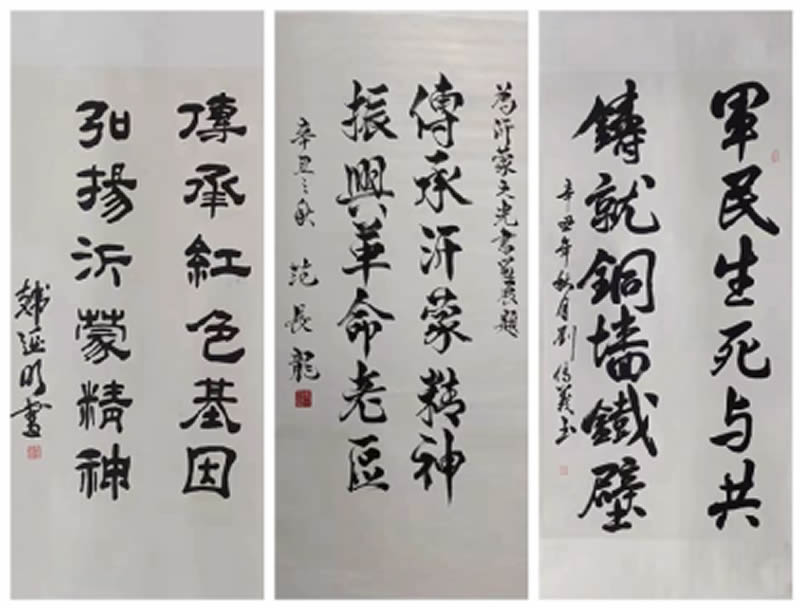 傳承紅色基因
弘揚沂蒙精神
韩延明書
為沂蒙之光書畫展題
傳承沂蒙精神
振興革命老区
辛丑之秋 范長龍
軍民生死与共
鑄就銅墙鐵壁
辛丑年秋月刘